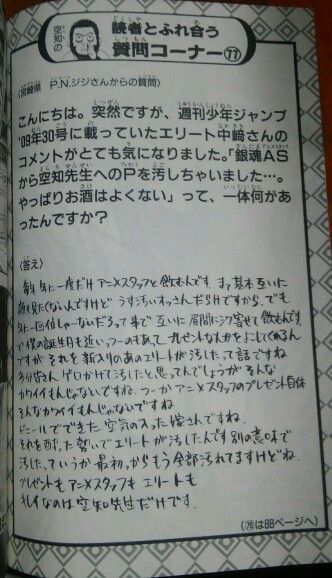 空知の
読者とふれ合う
質問コーナー77
〈宮崎県 P.N.ジジさんからの質問〉
こんにちは。突然ですが、週刊少年ジャンプ
'09年30号に載っていたエリート中﨑さんの
コメントがとても気になりました。「銀魂AS
から空知先生へのPを汚しちゃいました…。
やっぱりお酒はよくない」って、一体何があ
ったんですか?
〈答え〉
年に一度だけアニメスタッフと飲むんです。まァ基本互いに
顔も見たくないんですけど うす汚いオッさんだらけですから、でも
年に一回位しゃーないだろって事で互いに眉間にシワ寄せて飲むんです。
で僕の誕生日も近いっつーのもあって プレゼントなんかをよこしてくるん
ですが それを新入りのあのエリートが汚したって話ですね
多分皆さんゲロかけて汚したと思ってんでしょうが そんな
カワイイもんじゃないですね。つーかアニメスタッフのプレゼント自体
そんなカワイイもんじゃないですね
ビニールでできた空気の入った嫁さんですね。
それを酔った勢いでエリートが汚したんです 別の意味で
汚した、ていうか最初からもう全部汚れてますけどね。
プレゼントもアニメスタッフもエリートも
キレイなのは空知先生だけです。
(78は88ページへ)